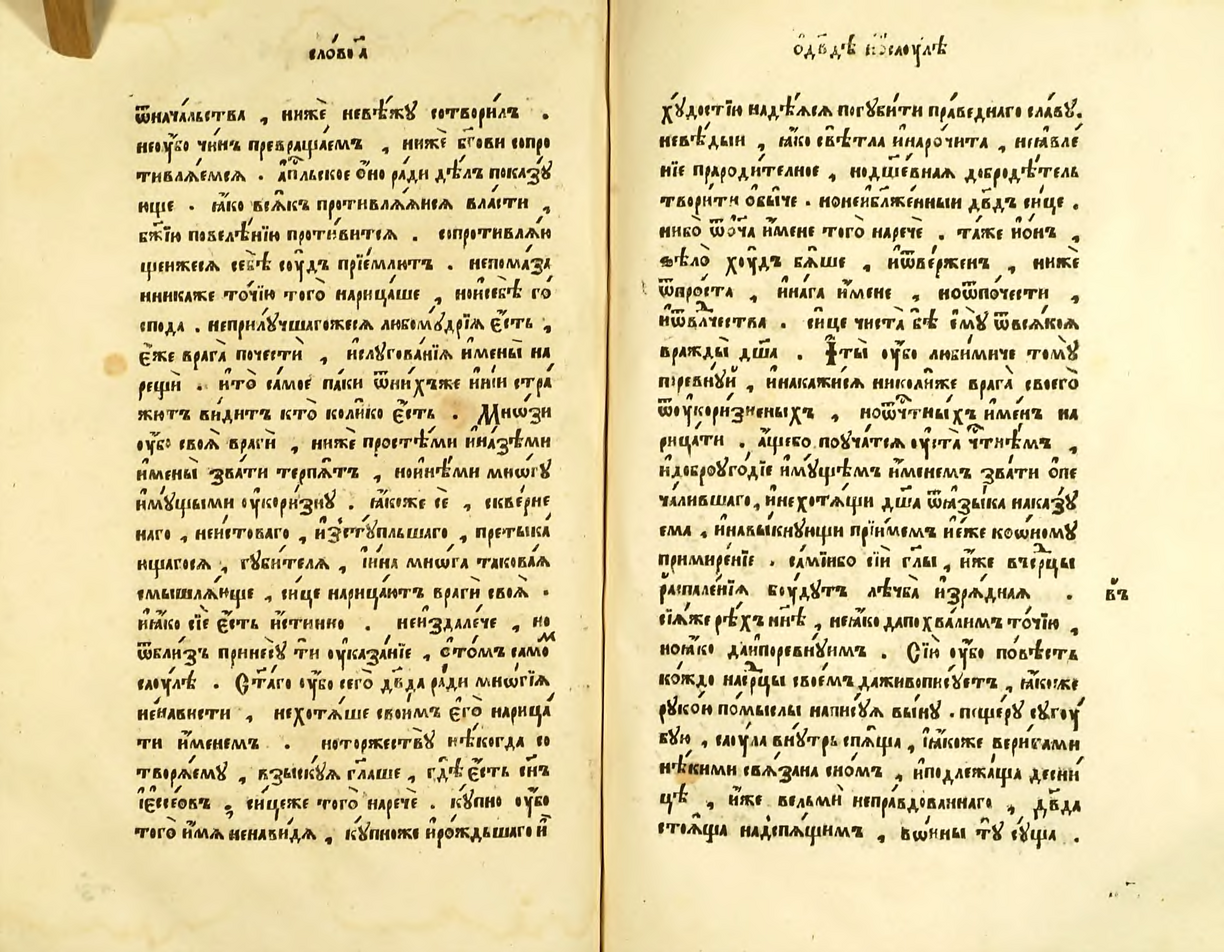 сло́во а҃
ѿнача́льства , нижѐ неве́жꙋ сотвори́лъ .
неоу҆́бо чи́нъ превраща́емъ , нижѐ бг҃ови сопро
тивлѧ́емсѧ . а҆пл҃ьское о҆́но ра́ди дѣ́лъ пока́зꙋ
юще . ꙗ҆́ко всѧ́къ противлѧ́ѧисѧ власти ,
бж҃їю повелѣ́нїю проти́витсѧ . сопротивлѧ́ю
щеижесѧ себѣ̀ соу́дъ прїе́млютъ . непома́за
нникаже то́чїю того̀ нарица́ше , ноисебѣ̀ го
спода̀ . неприлꙋ́чшагожесѧ любомꙋ́дрїѧ є҆́сть ,
є҆́же врага̀ почестѝ , ислꙋгова́нїѧ и҆́мены на
рещѝ . ито̀ само́е па́ки ѿни́хъже ни́ни стра́
жютъ ви́дитъ кто̀ коли́ко є҆́сть . Мно́ѕи
оу҆́бо своѧ̀ врагѝ , нижѐ просте́ми и҆наѕѣ́ми
и҆́мены зва́ти терпѧ́тъ , нои҆нѣ́ми мно́гꙋ
и҆мꙋ́щыми оу҆кори́знꙋ . ꙗ҆́коже сѐ , скве́рне
наго , неи́стоваго , и҆зстꙋ́пльшаго , претыка́
ющагосѧ , гꙋби́телѧ , и҆́ина мнѡ́га такова́ѧ
смышлѧ́юще , си́це нарица́ютъ врагѝ своѧ̀ .
и҆ꙗ҆́ко сїѐ є҆́сть и҆́стинно . неи҆здале́че , но
ѿбли́зъ принесꙋ́ ти оу҆каза́нїе , сто́мъ само́м
саоу́лѣ . Ст҃а́го оу҆́бо сего̀ дв҃да ра́ди мно́гїѧ
не́нависти , нехотѧ́ше свои́мъ є҆го̀ нарица́
ти и҆́менемъ . ноторжествꙋ̀ нѣ́когда со
творѧ́емꙋ , взы́скꙋѧ гл҃аше , гдѣ̀ є҆́сть сн҃ъ
і҆єссе́овъ , си́цеже того̀ наречѐ . кꙋ́пно оу҆́бо
того̀ и҆́мѧ ненави́дѧ , кꙋ́пноже и҆ро́ждьшаго и҆
ѡ҆дв҃дѣ и҆ѡ҆саоу́лѣ
хꙋ́достїю надѣ́ѧсѧ погꙋби́ти пра́веднаго сла́вꙋ .
невѣ́дыи , ꙗ҆́ко свѣ́тла и҆нарочи́та , неꙗ҆вле́
нїе прароди́телное , нодш҃е́внаѧ добродѣ́тель
твори́ти обы́че . ноне́иблаже́нныи дв҃дъ си́це .
нибо̀ ѿо҆ц҃а и҆́мене того̀ наречѐ . та́же и҆о́нъ ,
ѕѣло̀ хоу́дъ бѧ́ше , и҆ѿве́рженъ , нижѐ
ѿпро́ста , и҆на́га и҆́мене , ноѿпоче́сти ,
и҆ѿвл҃чества . си́це чиста̀ бѣ̀ є҆мꙋ̀ ѿвсѧ́коѧ
вражды̀ дш҃а . И҆ты̀ оу҆́бо люби́миче томꙋ̀
поревнꙋ́й , и҆нака́жисѧ николи́же врага̀ своего̀
ѿоу҆кори́зненыхъ , ноѿчт҃ны́хъ и҆ме́нъ на
рица́ти . а҆́щебо поуча́тсѧ оу҆ста̀ чт҃нѣ́мъ ,
и҆доброуго́дїе и҆мꙋ́щемъ и҆́менемъ зва́ти о҆пе
ча́лившаго , и҆нехотѧ́щи дш҃а ѿꙗ҆зы́ка нака́зꙋ
ема , и҆навы́кнꙋющи прїи́мемъ не́же ко́ѡномꙋ
примире́нїе . самі́ибо сїѝ гл҃ы , и҆́же всрⷣцы
распале́нїѧ боу́дꙋтъ лѣчба̀ и҆зрѧ́днаѧ . въ
сїѧ́же рѣ́хъ нн҃ѣ , неꙗ҆́ко дапохва́лимъ то́чїю ,
ноꙗ҆́ко даи҆поревнꙋ́имъ . Сїѝ оу҆́бо по́вѣсть
ко́ждо насрⷣцы свое́мъ даживопи́сꙋетъ , ꙗ҆́коже
рꙋко́ю помы́слы напи́сꙋѧ вы́нꙋ . пеще́рꙋ сꙋгоу́
бꙋю , саоу́ла внꙋ́трь спѧ́ща , і҆ꙗ҆́коже вери́гами
нѣ́кими свѧ́зана сно́мъ , и҆подлежа́ща десни́
цѣ , и҆́же вельмѝ непра́вдованнаго , дв҃да
стоѧ́ща надспѧ́щимъ , во́ины тꙋ̀ сꙋ́ща .